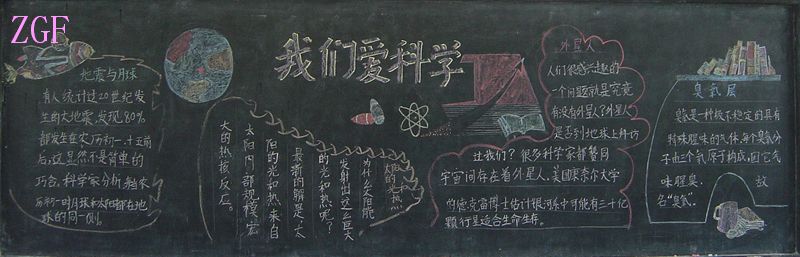 ZGF
我们爱科学
地震与月球
有人统计过20世纪发
生的大地震,发现,80%
都发生在农历初一、十五前
后,这显然不是简单的
巧合,科学家分析,每农
历初一时月球和太阳都在地
球的同一侧。
太阳的光热
为什么太阳能
发射出这么巨大
的光和热呢?
最新的解是:太
阳的光和热来自
太阳内部规模宏
大的热核反应。
外星人
人们很感兴趣的
一个问题就是究竟
有没有外星人?外星人
是否到地球上拜访
过我们?很多科学家都赞同
宇宙间存在着外星人,美国康奈尔大学
的德克雷博士估计银河系中可能有三十亿
颗行星适合生命生存。
臭氧层
臭氧是一种极不稳定的具有
特殊腥味的气体,每个臭氧分
子由三个氧原子构成,因它气
味腥臭,故
名“臭氧”。